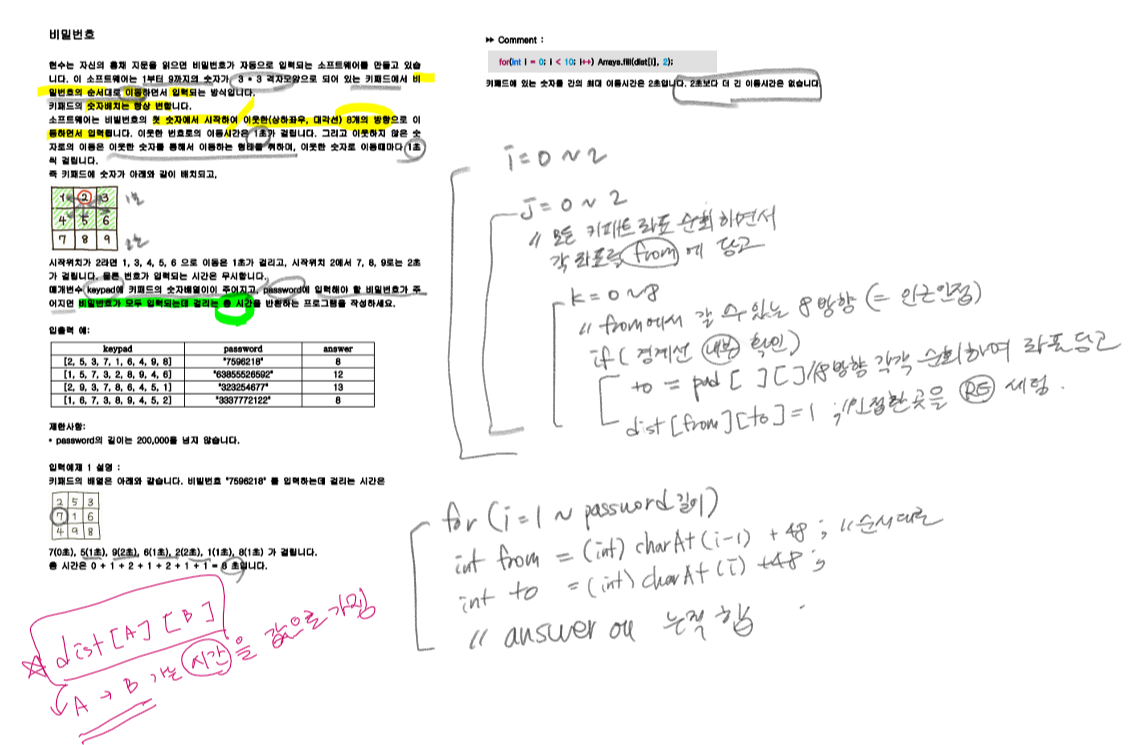 비밀번호
현수는 자신의 홍채 지문을 읽으면 비밀번호가 자동으로 입력되는 소프트웨어를 만들고 있습
니다. 이 소프트웨어는 1부터 9까지의 숫자가 3 * 3 격자모양으로 되어 있는 키패드에서 비
밀번호의 순서대로 이동하면서 입력되는 방식입니다.
키패드의 숫자배치는 항상 변합니다.
소프트웨어는 비밀번호의 첫 숫자에서 시작하여 이웃한(상하좌우, 대각선) 8개의 방향으로 이
동하면서 입력됩니다. 이웃한 번호로의 이동시간은 1초가 걸립니다. 그리고 이웃하지 않은 숫
자로의 이동은 이웃한 숫자를 통해서 이동하는 형태를 취하며, 이웃한 숫자로 이동때마다 1초
씩 걸립니다.
즉 키패드에 숫자가 아래와 같이 배치되고,
1 2 3 1초
4 5 6
7 8 9 2초
시작위치가 2라면 1, 3, 4, 5, 6 으로 이동은 1초가 걸리고, 시작위치 2에서 7, 8, 9로는 2초
가 걸립니다. 물론 번호가 입력되는 시간은 무시합니다.
매개변수 keypad에 키패드의 숫자배열이이 주어지고, password에 입력해야 할 비밀번호가 주
어지면 비밀번호가 모두 입력되는데 걸리는 총 시간을 반환하는 프로그램을 작성하세요.
입출력 예:
keypad password answer
[2, 5, 3, 7, 1, 6, 4, 9, 8] "7596218" 8
[1, 5, 7, 3, 2, 8, 9, 4, 6] "63855526592" 12
[2, 9, 3, 7, 8, 6, 4, 5, 1] "323254677" 13
[1, 6, 7, 3, 8, 9, 4, 5, 2] "3337772122" 8
제한사항:
• password의 길이는 200,000를 넘지 않습니다.
입력예제 1 설명 :
키패드의 배열은 아래와 같습니다. 비빌번호 "7596218" 를 입력하는데 걸리는 시간은
2 5 3
7 1 6
4 9 8
7(0초), 5(1초), 9(2초), 6(1초), 2(2초), 1(1초), 8(1초) 가 걸립니다.
총 시간은 0 + 1 + 2 + 1 + 2 + 1 + 1 = 8 초입니다.
☆ dist[A][B]
A → B 가는 시간을 값으로 가짐
▸▸ Comment :
for(int i = 0; i < 10; i++) Arrays.fill(dist[i], 2);
키패드에 있는 숫자들 간의 최대 이동시간은 2초입니다. 2초보다 더 긴 이동시간은 없습니다.
i = 0 ~ 2
J = 0 ~ 2
// 모든 키패드 좌표 순회하면서
각 좌표를 from에 담고
k = 0 ~ 8
// from에서 갈 수 있는 8방향 (= 인근인접)
if( 경계선 내부 확인)
to = pad [ ][ ] //8방향 각각 순회하며 좌표 담고
dist[from][to] = 1 ; //인접한 곳을 세팅.
for (i = 1 ~ password 길이)
int from = (int) charAt(i-1) + 48 ; // 순서대로
int to = (int) charAt(i) +48 ;
// answer 에 누적 합